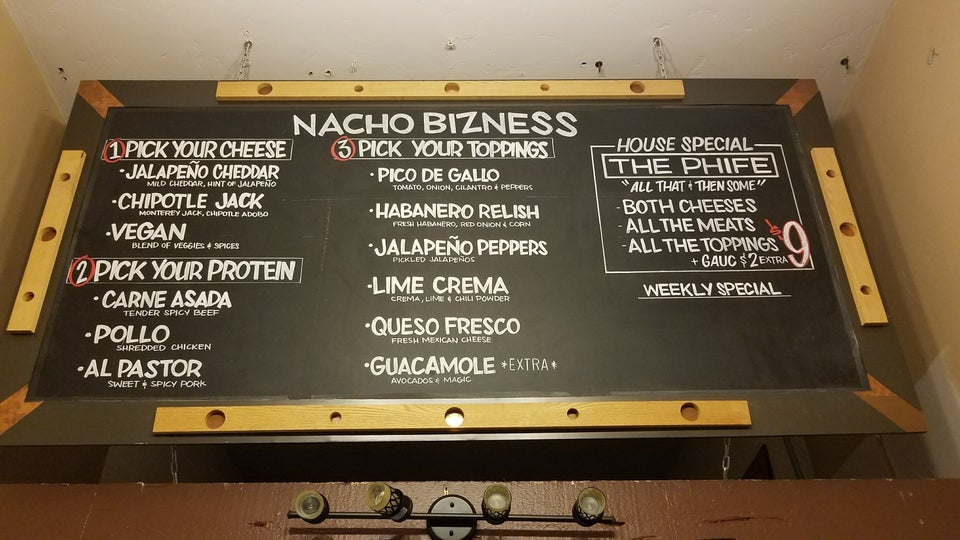 NACHO BIZNESS
1 PICK YOUR CHEESE
• JALAPEÑO CHEDDAR
MILD CHEDDAR, HINT OF JALAPEÑO
• CHIPOTLE JACK
MONTEREY JACK, CHIPOTLE ADOBO
• VEGAN
BLEND OF VEGGIES & SPICES
2 PICK YOUR PROTEIN
• CARNE ASADA
TENDER SPICY BEEF
• POLLO
SHREDDED CHICKEN
• AL PASTOR
SWEET & SPICY PORK
3 PICK YOUR TOPPINGS
• PICO DE GALLO
TOMATO, ONION, CILANTRO & PEPPERS
• HABANERO RELISH
FRESH HABANERO, RED ONION & CORN
• JALAPEÑO PEPPERS
PICKLED JALAPEÑOS
• LIME CREMA
CREMA, LIME & CHILI POWDER
• QUESO FRESCO
FRESH MEXICAN CHEESE
• GUACAMOLE *EXTRA*
AVOCADOS & MAGIC
HOUSE SPECIAL
THE PHIFE
"ALL THAT & THEN SOME"
- BOTH CHEESES
- ALL THE MEATS
- ALL THE TOPPINGS $9
+ GAUC $2 EXTRA
WEEKLY SPECIAL